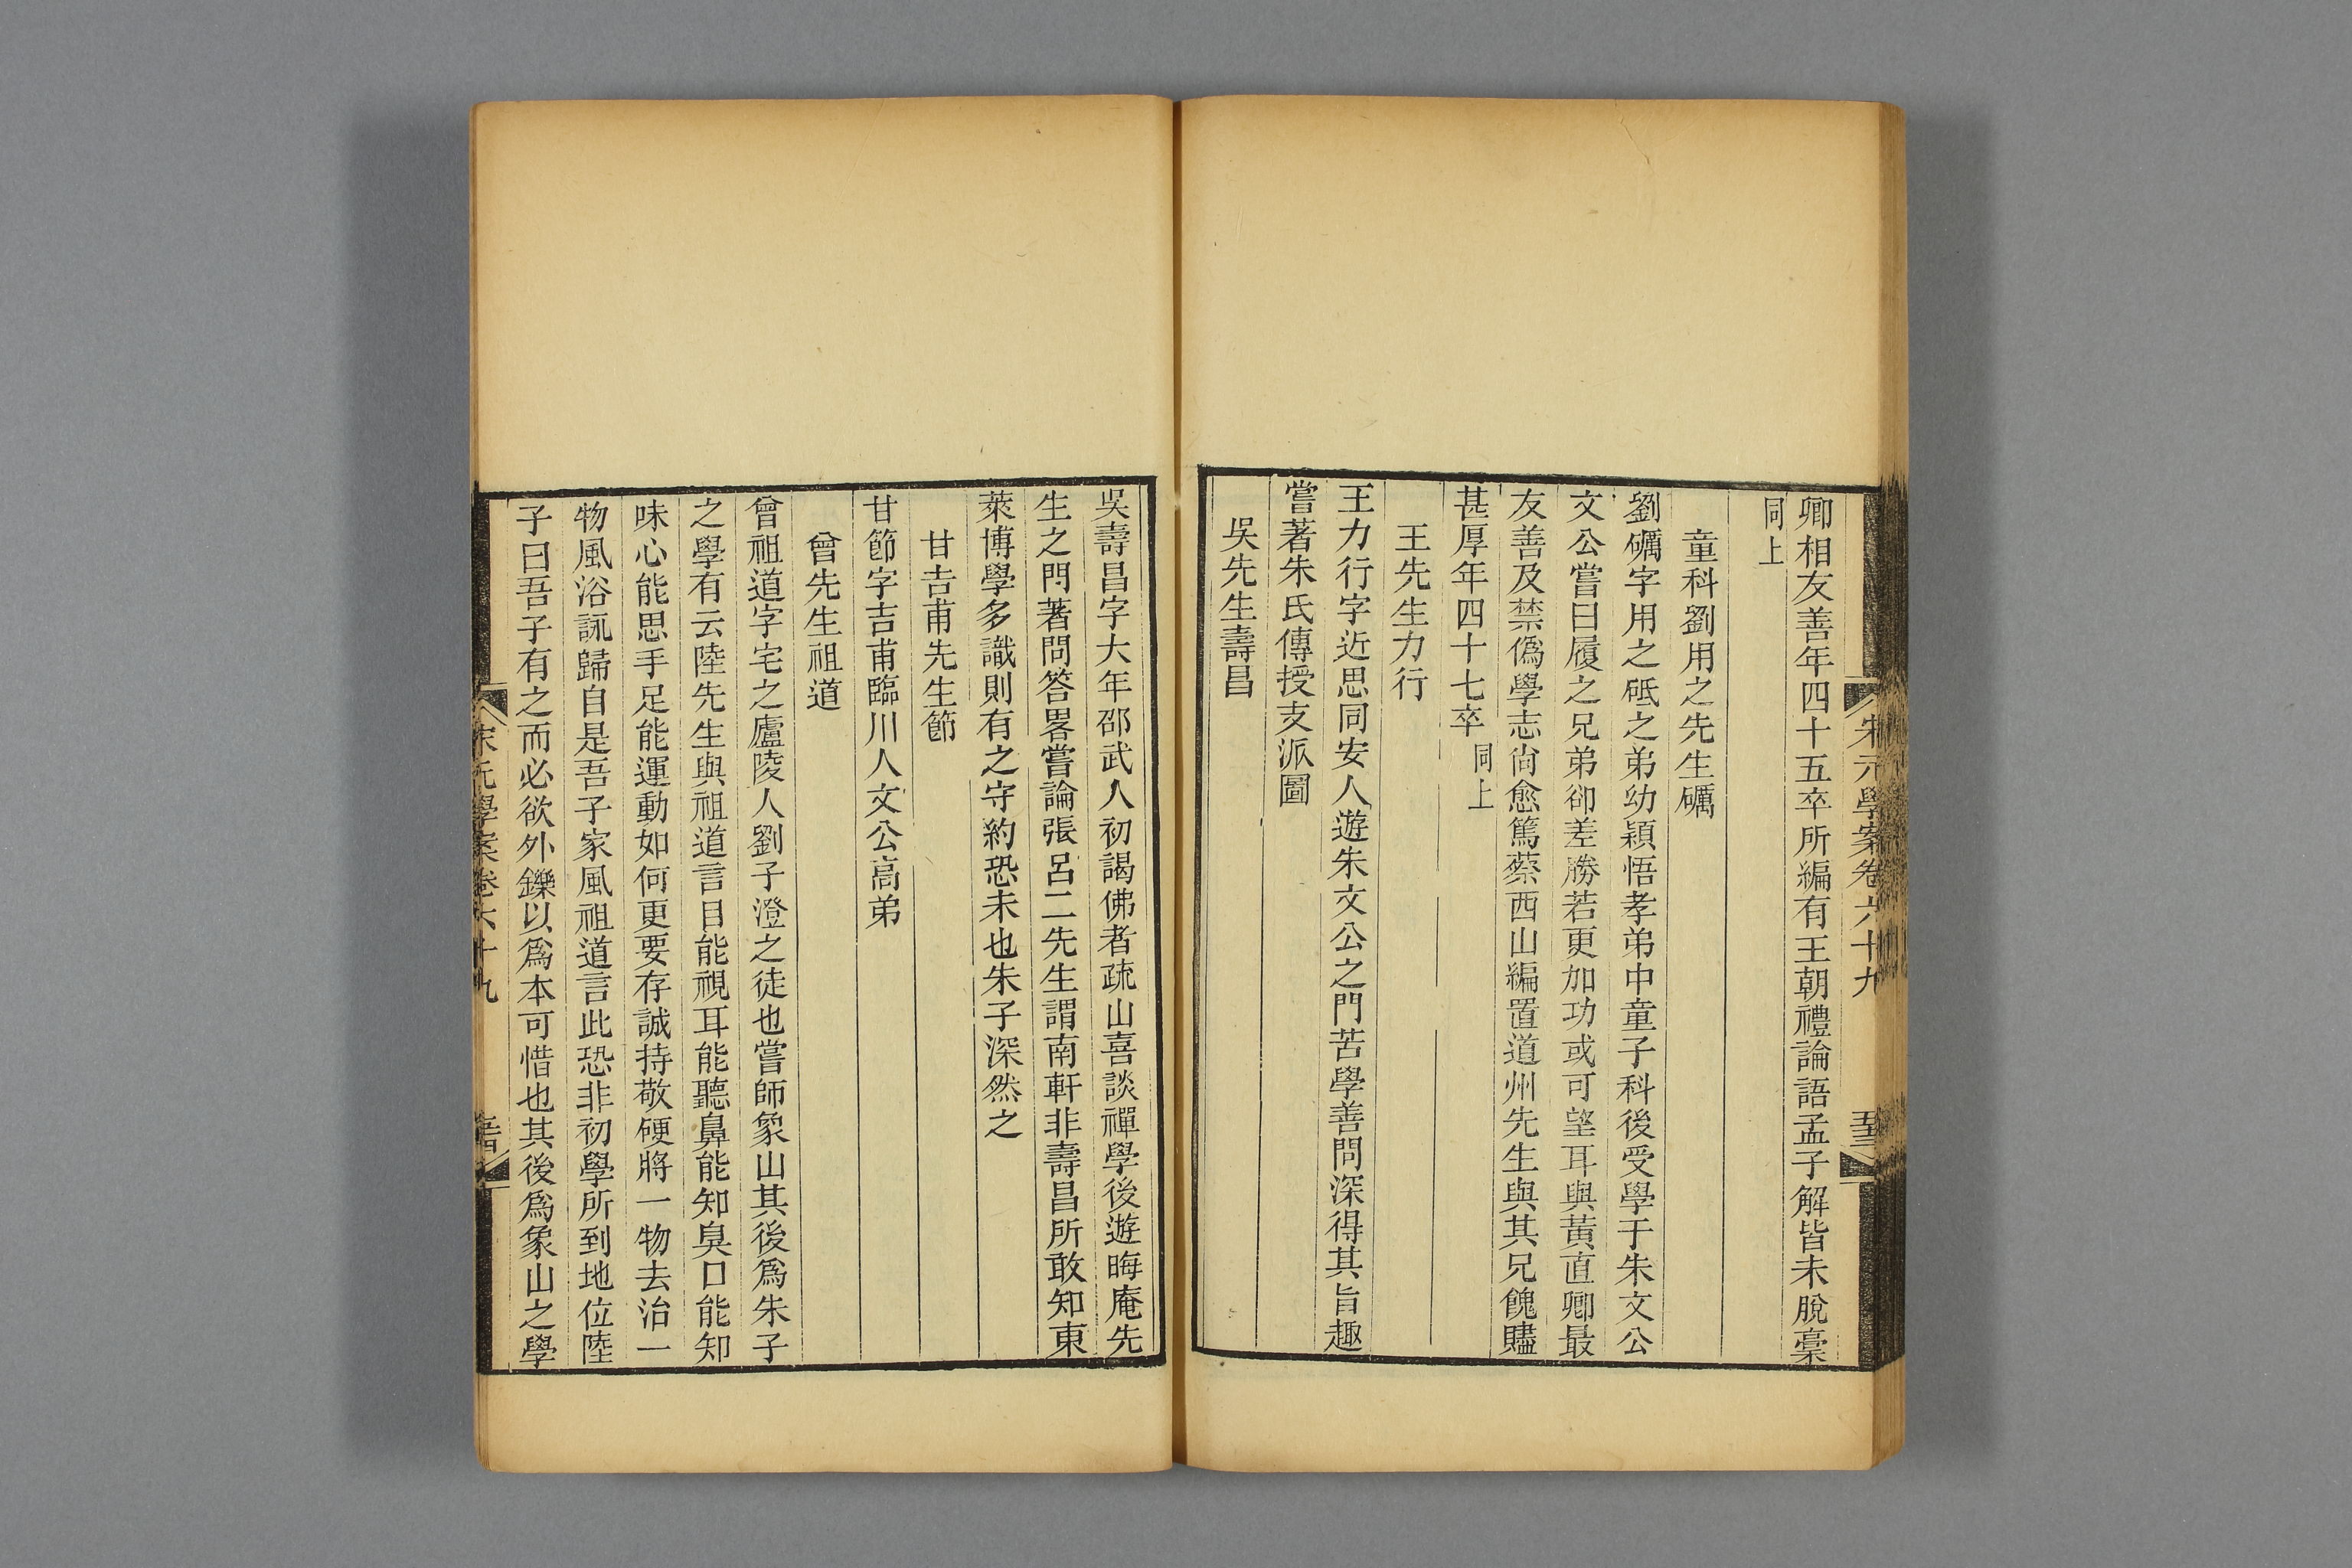 宋元學案卷六十九
卿相友善年四十五卒所編有王朝禮論語孟子解皆未脫稾
同上
童科劉用之先生礪
劉礪字用之砥之弟幼穎悟孝弟中童子科後受學于朱文公
文公嘗曰履之兄弟卻差勝若更加功或可望耳與黃直卿最
友善及禁僞學志尙愈篤蔡西山編置道州先生與其兄餽贐
甚厚年四十七卒同上
王先生力行
王力行字近思同安人遊朱文公之門苦學善問深得其旨趣
嘗著朱氏傳授支派圖
吳先生壽昌
吳壽昌字大年邵武人初謁佛者疏山喜談禪學後遊晦庵先
生之門著問答畧嘗論張呂二先生謂南軒非壽昌所敢知東
萊博學多識則有之守約恐未也朱子深然之
甘吉甫先生節
甘節字吉甫臨川人文公高弟
曾先生祖道
曾祖道字宅之廬陵人劉子澄之徒也嘗師象山其後爲朱子
之學有云陸先生與祖道言目能視耳能聽鼻能知臭口能知
味心能思手足能運動如何更要存誠持敬硬將一物去治一
物風浴詠歸自是吾子家風祖道言此恐非初學所到地位陸
子曰吾子有之而必欲外鑠以爲本可惜也其後爲象山之學
宋元學案卷六十九